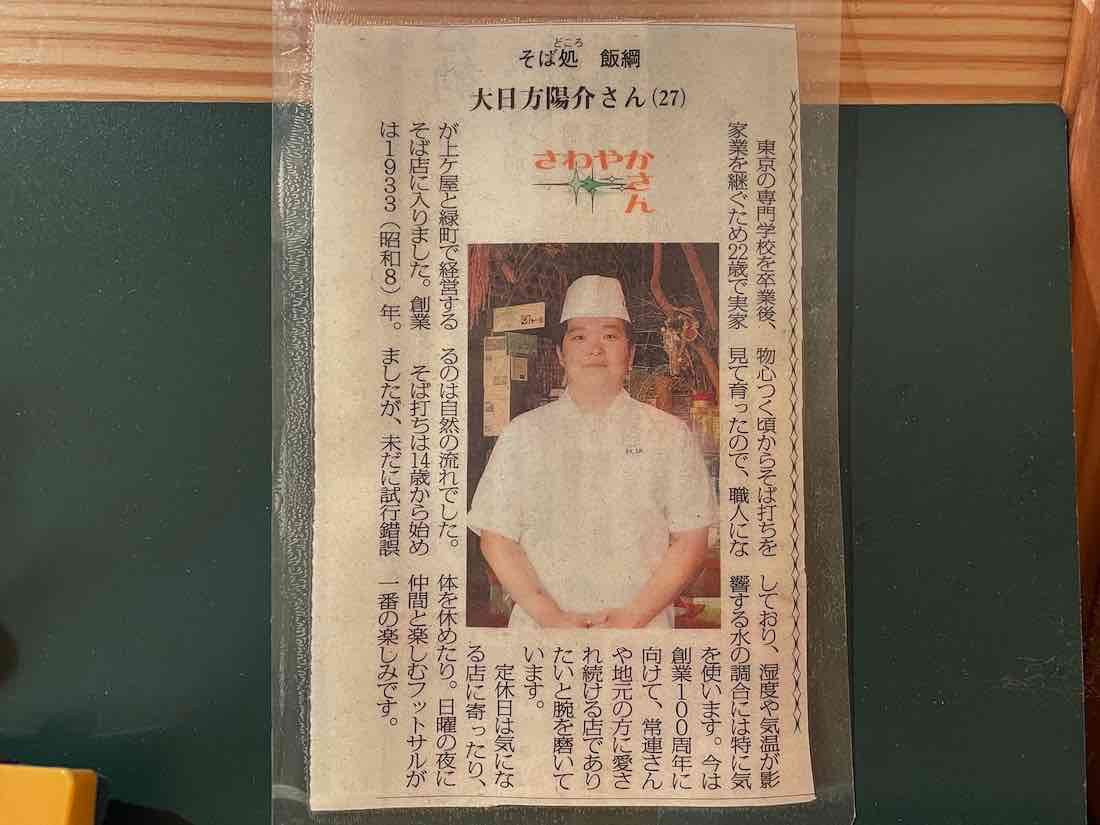 どころ
そば処 飯綱
大日方陽介さん(27)
さわやかさん
東京の専門学校を卒業後、
家業を継ぐため22歳で実家
が上ケ屋と緑町で経営する
そば店に入りました。創業
は1933（昭和8）年。
物心つく頃からそば打ちを
見て育ったので、職人にな
るのは自然の流れでした。
そば打ちは14歳から始め
ましたが、未だに試行錯誤
しており、湿度や気温が影
響する水の調合には特に気
を使います。今は
創業100周年に
向けて、常連さん
や地元の方に愛さ
れ続ける店であり
たいと腕を磨いて
います。
定休日は気にな
る店に寄ったり、
体を休めたり。日曜の夜に
仲間と楽しむフットサルが
一番の楽しみです。